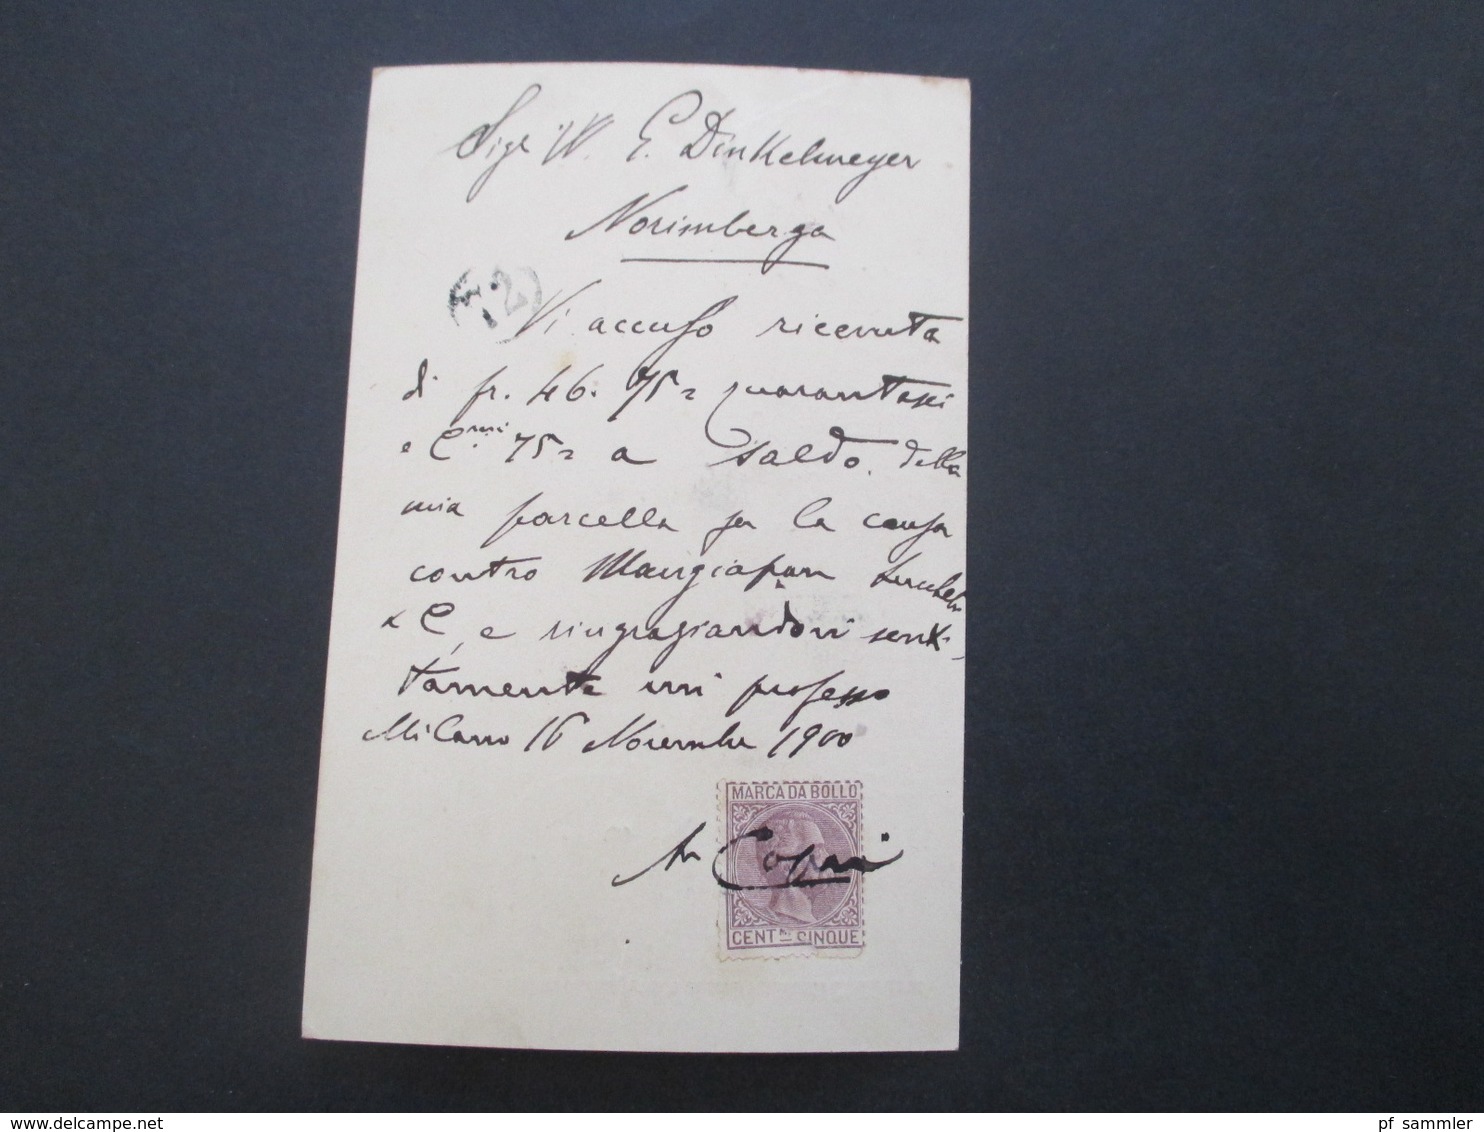 Sigr W. E. Dinkelmeyer
Norimberga
Vi accuso ricevuta
di fr. 46.75= quarantasei
e Cmi 75= a saldo della
mia parcella per la causa
contro Mangiapan
e C, e ringraziandovi senti-
tamente mi professo
Milano 16 Novembre 1900
MARCA DA BOLLO
CENT.MI CINQUE
delcampe.net
pf_sammler